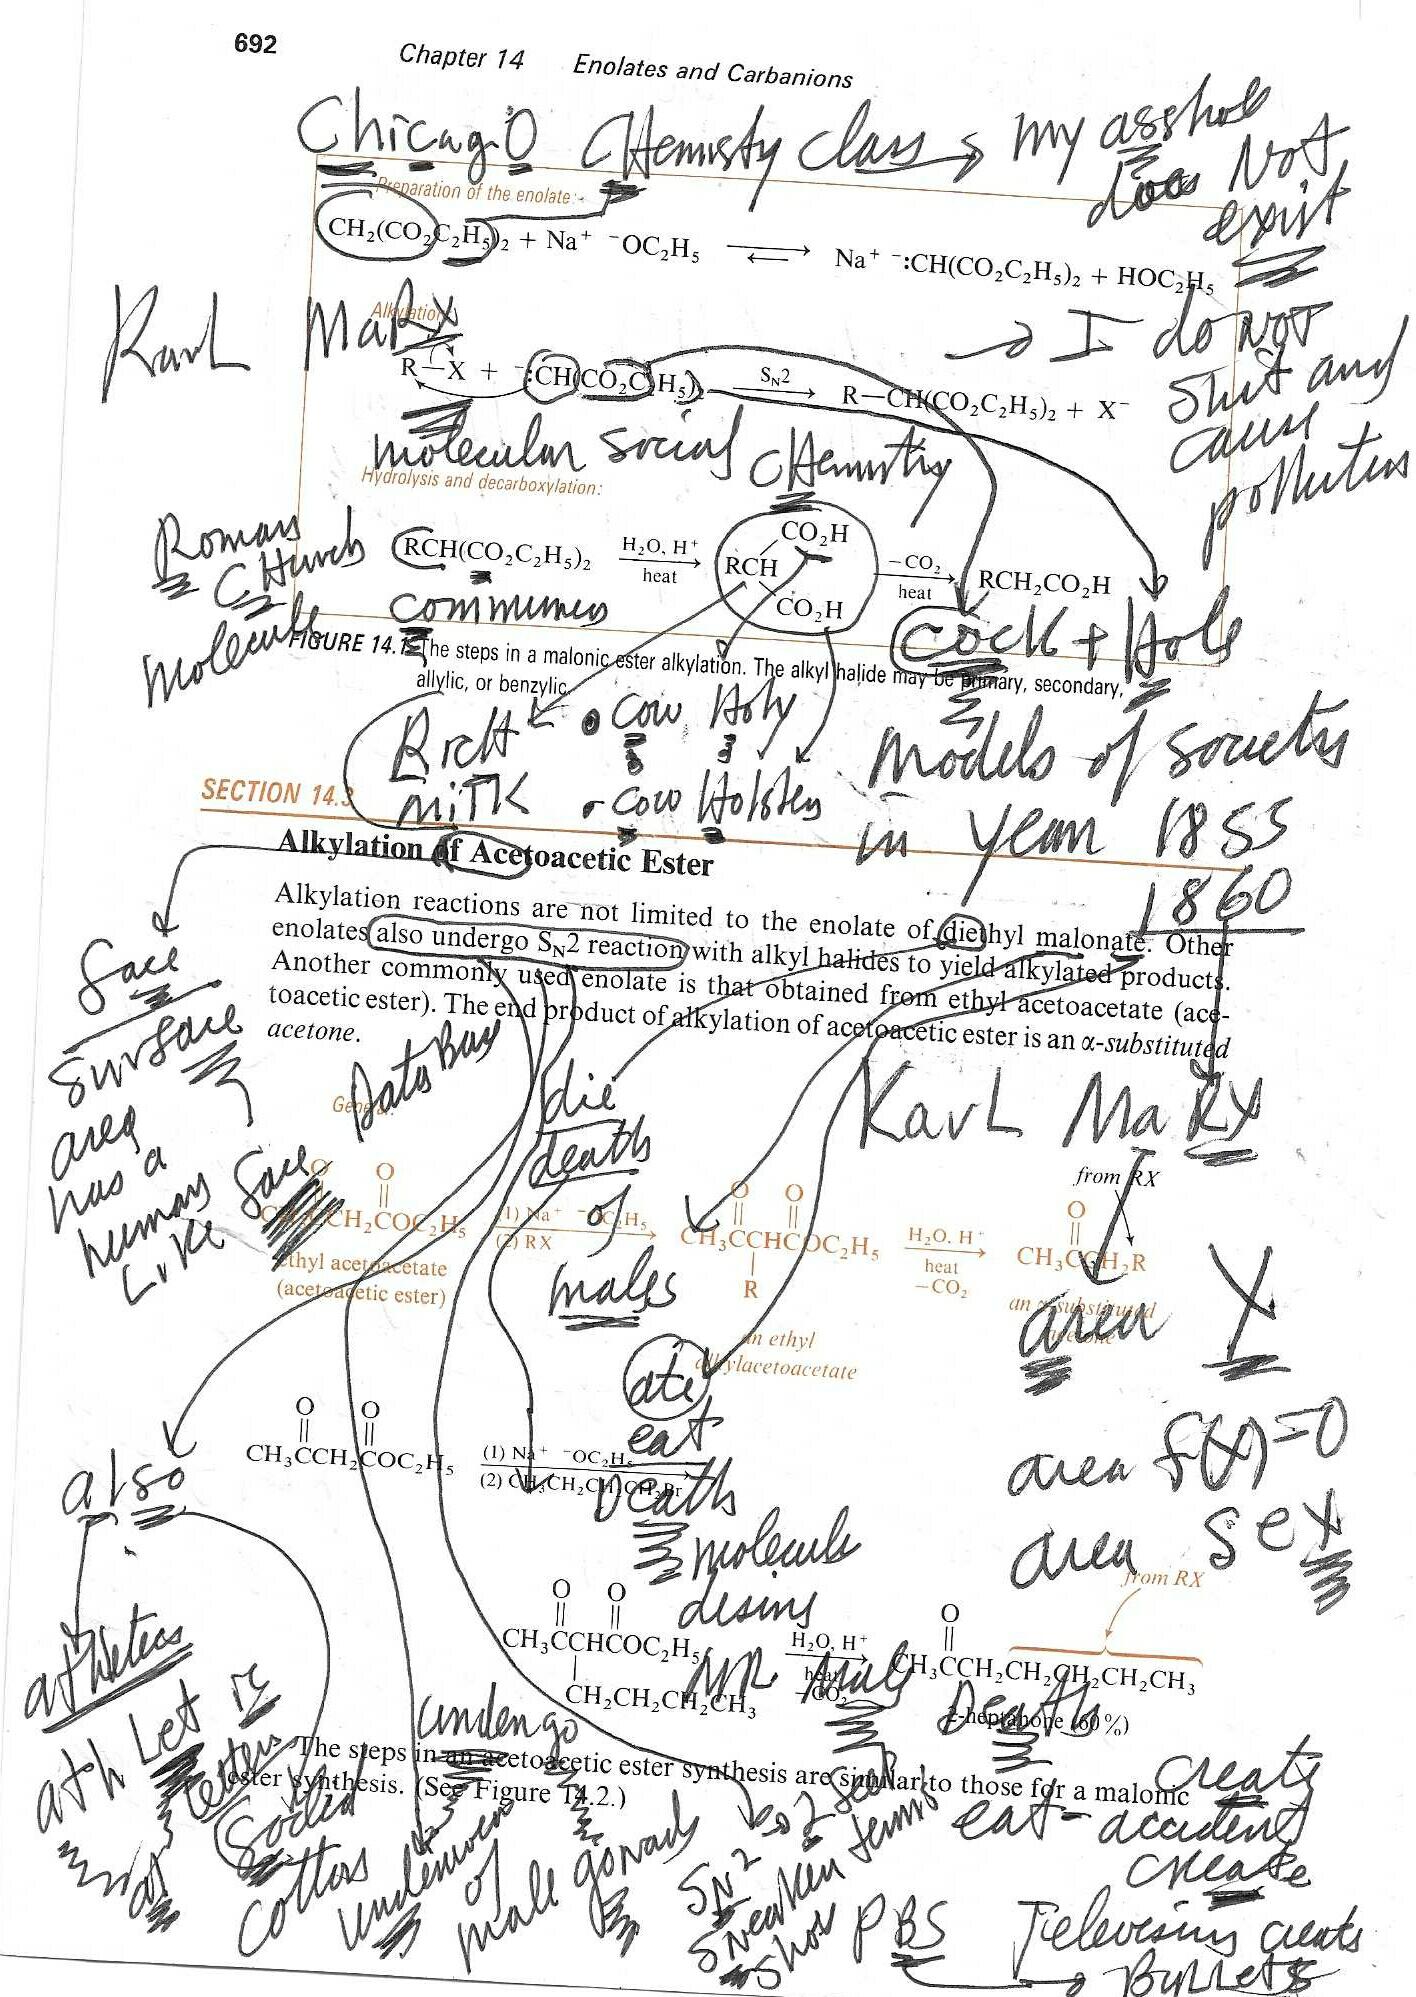 692
Chapter 14 Enolates and Carbanions
ChicagO CHemisty class → my asshole
does Not
exist
Preparation of the enolate:
CH₂(CO₂C₂H₅)₂ + Na⁺ ⁻OC₂H₅ ⇌ Na⁺ ⁻:CH(CO₂C₂H₅)₂ + HOC₂H₅
Karl MaRX
Alkylation:
→ I do Not
Shit and
cause
pollution
R—X + ⁻:CH(CO₂C₂H₅)₂ SN2 → R—CH(CO₂C₂H₅)₂ + X⁻
molecular social CHemistry
Hydrolysis and decarboxylation:
Roman
CHurch
molecule
RCH(CO₂C₂H₅)₂ H₂O, H⁺ heat → RCH CO₂H CO₂H −CO₂ heat → RCH₂CO₂H
communion
cock + Hole
FIGURE 14.1 The steps in a malonic ester alkylation. The alkyl halide may be primary, secondary,
allylic, or benzylic.
RicH • cow Holy
milk • cow Holsten
models of society
in year 1855
1860
SECTION 14.3
Alkylation of Acetoacetic Ester
Alkylation reactions are not limited to the enolate of diethyl malonate. Other
enolates also undergo SN2 reaction with alkyl halides to yield alkylated products.
Another commonly used enolate is that obtained from ethyl acetoacetate (ace-
toacetic ester). The end product of alkylation of acetoacetic ester is an α-substituted
acetone.
face
surface
area
has a
human face
Like
Data Base
die
death
of
males
Karl MaRX
General:
CH₃CCH₂COC₂H₅ (1) Na⁺ ⁻OC₂H₅ (2) RX → CH₃CCHCOC₂H₅ R H₂O, H⁺ heat −CO₂ → CH₃CCH₂R
from RX
ethyl acetoacetate
(acetoacetic ester)
an ethyl
alkylacetoacetate
an α-substituted
acetone
area X
ate
eat
Death
molecule
area f(x)=0
area sex
also
CH₃CCH₂COC₂H₅ (1) Na⁺ ⁻OC₂H₅ (2) CH₃CH₂CH₂CH₂Br
from RX
CH₃CCHCOC₂H₅ CH₂CH₂CH₂CH₃ H₂O, H⁺ heat −CO₂ → CH₃CCH₂CH₂CH₂CH₂CH₃
2-heptanone (60%)
MR Male Death
athLet is
letters
of
undergo
The steps in an acetoacetic ester synthesis are similar to those for a malonic
ester synthesis. (See Figure 14.2.)
create
eat - accident
create
cotton
underwear
of
male gonads
SN2
show PBS Television creats
→ Bullets